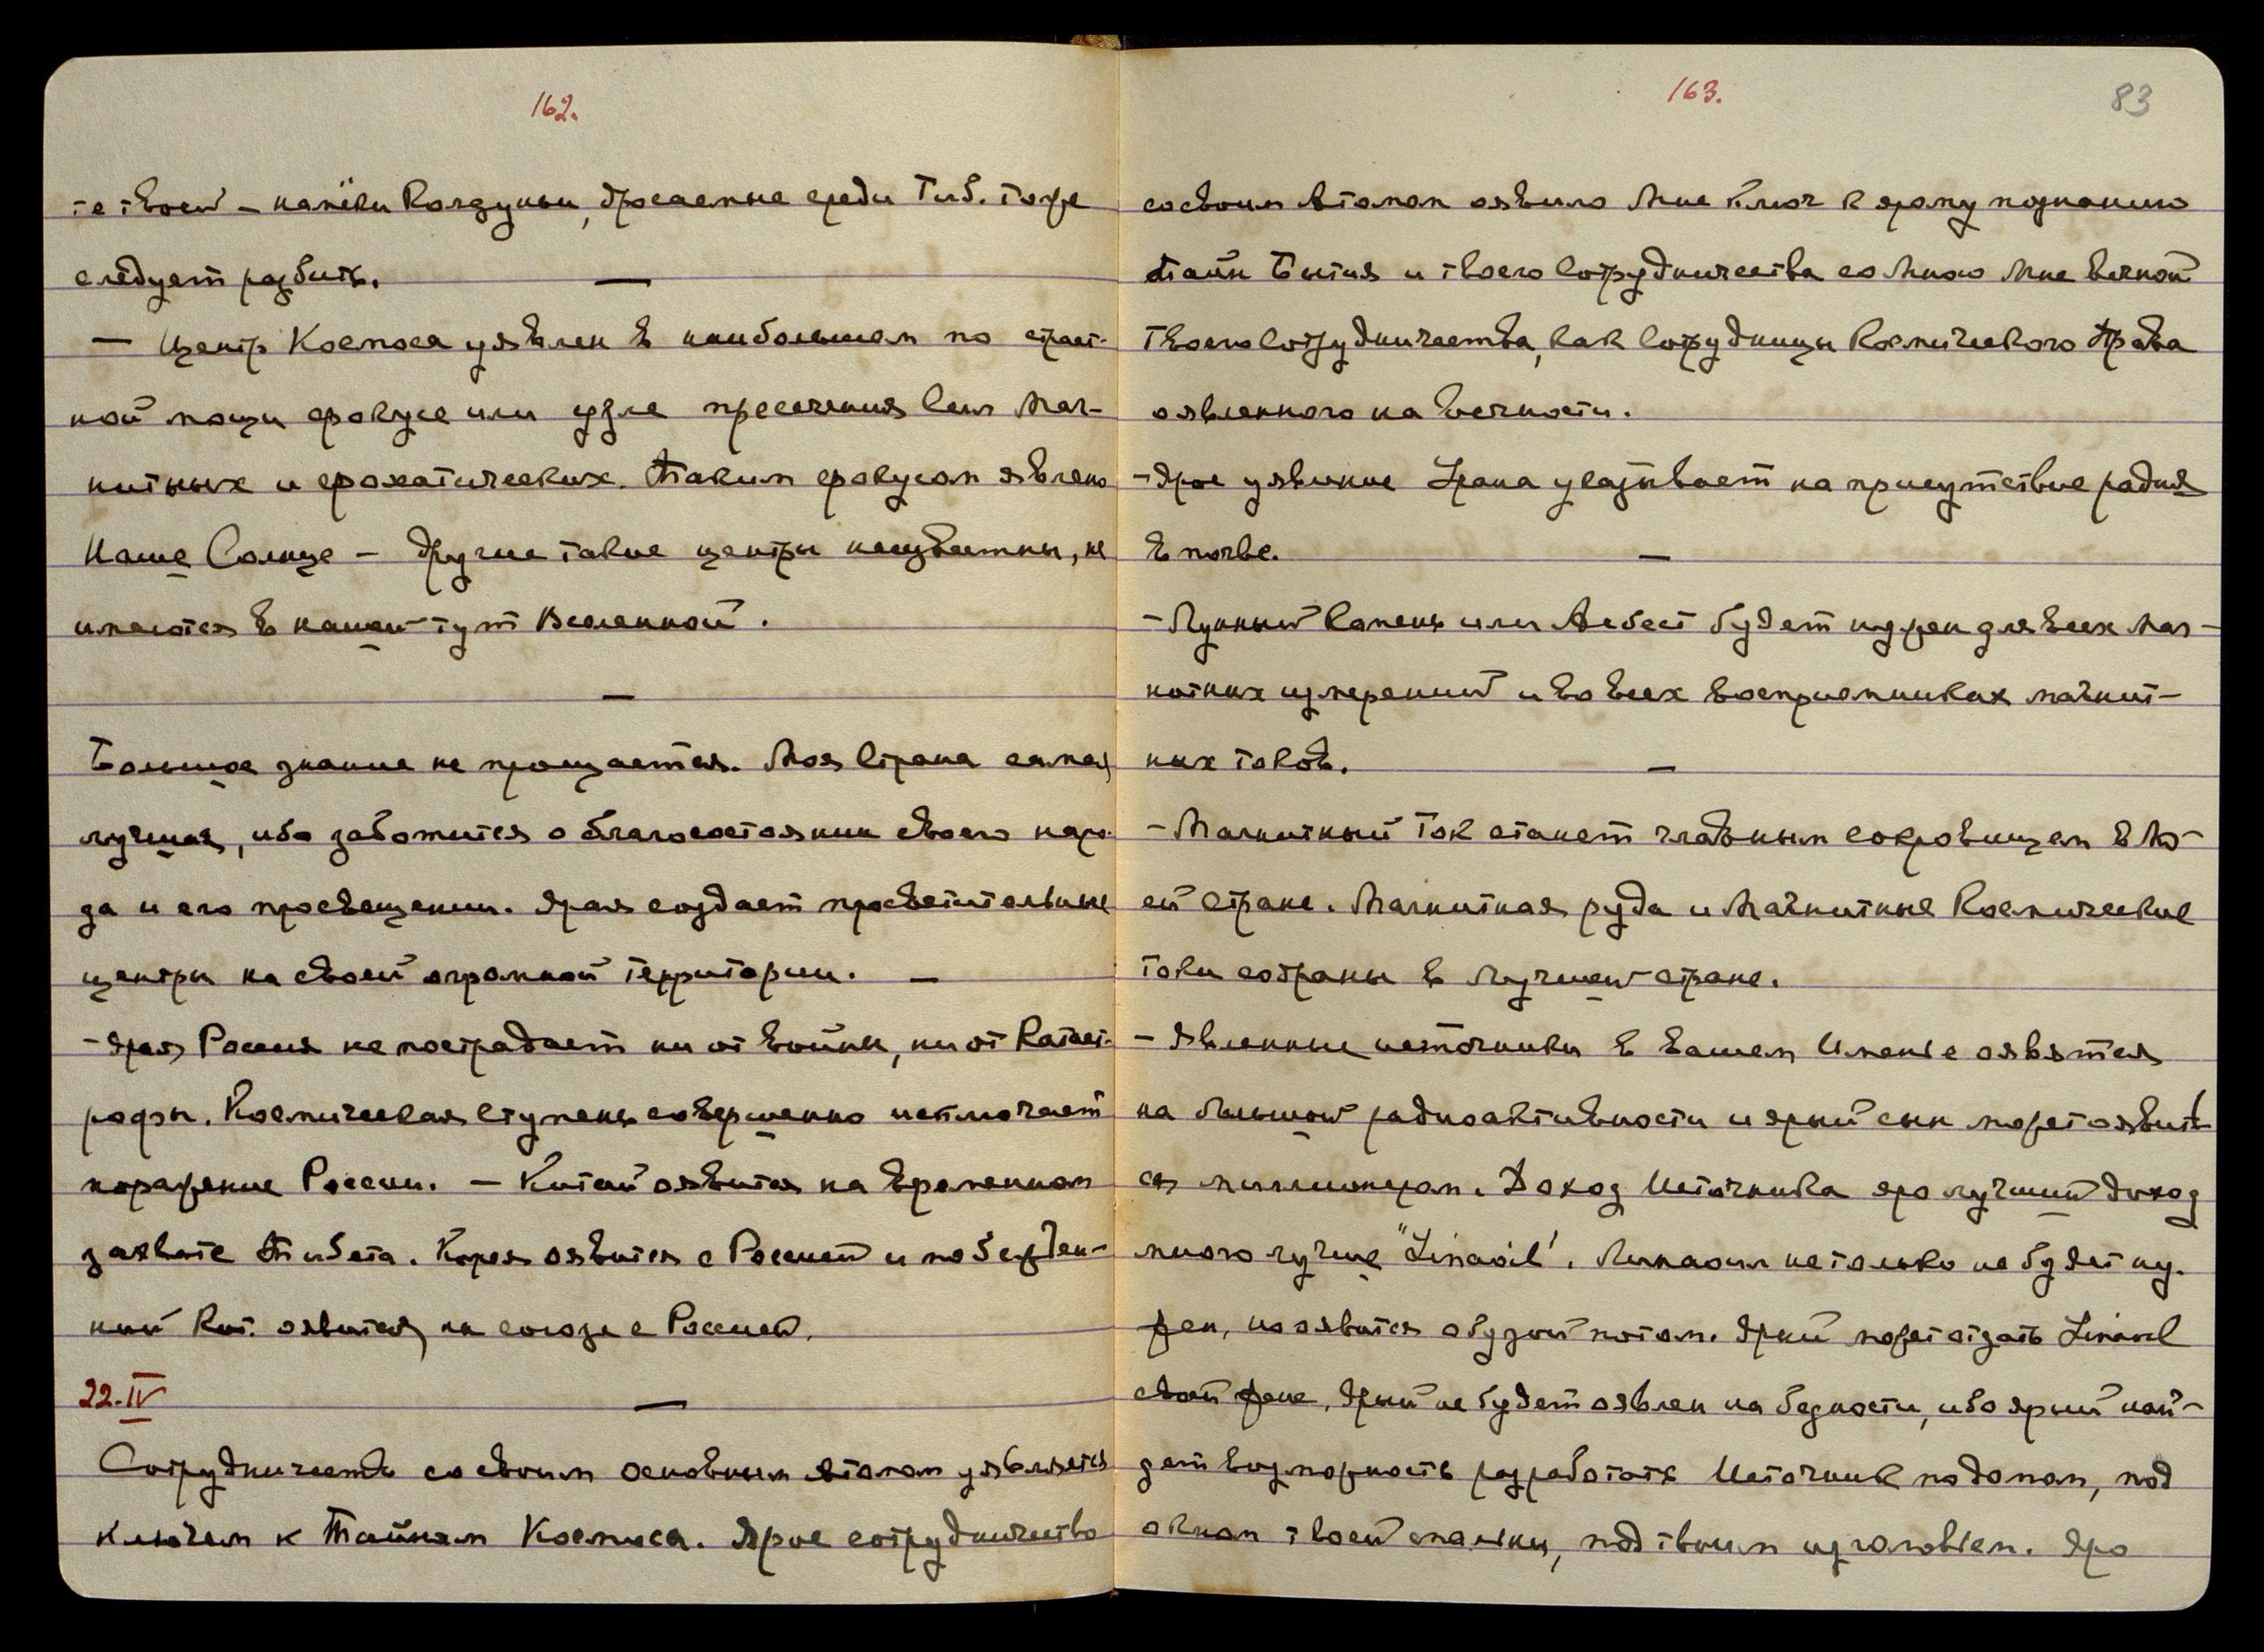 162.
те твоей – намёки Колдуньи, бросаемые среди Тиб. тоже
следует разбить. —
— Центр Космоса уявлен в наибольшем по страст-
ной мощи фокусе или узле пресечения Сил Маг-
нитных и фохатических. Таким фокусом явлено
Наше Солнце – другие такие центры неизвестны, не
имеются в нашей тут Вселенной.
—
Большое знание не прощается. Моя Страна самая
лучшая, ибо заботится о благосостоянии своего наро-
да и его просвещении. Ярая создает просветительные
центры на своей огромной территории. —
- Ярая Россия не пострадает ни от войны, ни от Катаст-
рофы. Космическая Ступень совершенно исключает
поражение России. – Китай оявится на временном
захвате Тибета. Корея оявится с Россией и побежден-
ный Кит. оявится на союзе с Россией.
22.IV —
Сотрудничество со своим основным атомом уявляется
ключем к Тайнам Космоса. Ярое сотрудничество
163.
83
со своим Атомом оявило Мне Ключ к ярому познанию
Тайн Бытия и твоего Сотрудничества со Мною Мне вечной
Твоего Сотрудничества, как Сотрудницы Космического Права
оявленного на вечности.
- Ярое уявление Урана указывает на присутствие радия
в почве. —
- Лунный Камень или Асбест будет нужен для всех Маг-
нитных измерений и во всех восприемниках магнит-
ных токов. —
- Магнитный Ток станет главным сокровищем в Мо-
ей стране. Магнитная руда и Магнитные Космические
токи собраны в Лучшей стране.
- Явленные источники в вашем Именье оявятся
на большой радиоактивности и ярый сын может оявить-
ся миллионером. Доход Источника яро лучший доход
много лучше "Linaoil". Линаоил не только не будет ну-
жен, но оявится обузой потом. Ярый может отдать Linaoil
своей жене, Ярый не будет оявлен на бедности, ибо ярый най-
дет возможность разработать Источник под домом, под
окном твоей спальни, под твоим изголовьем. Яро